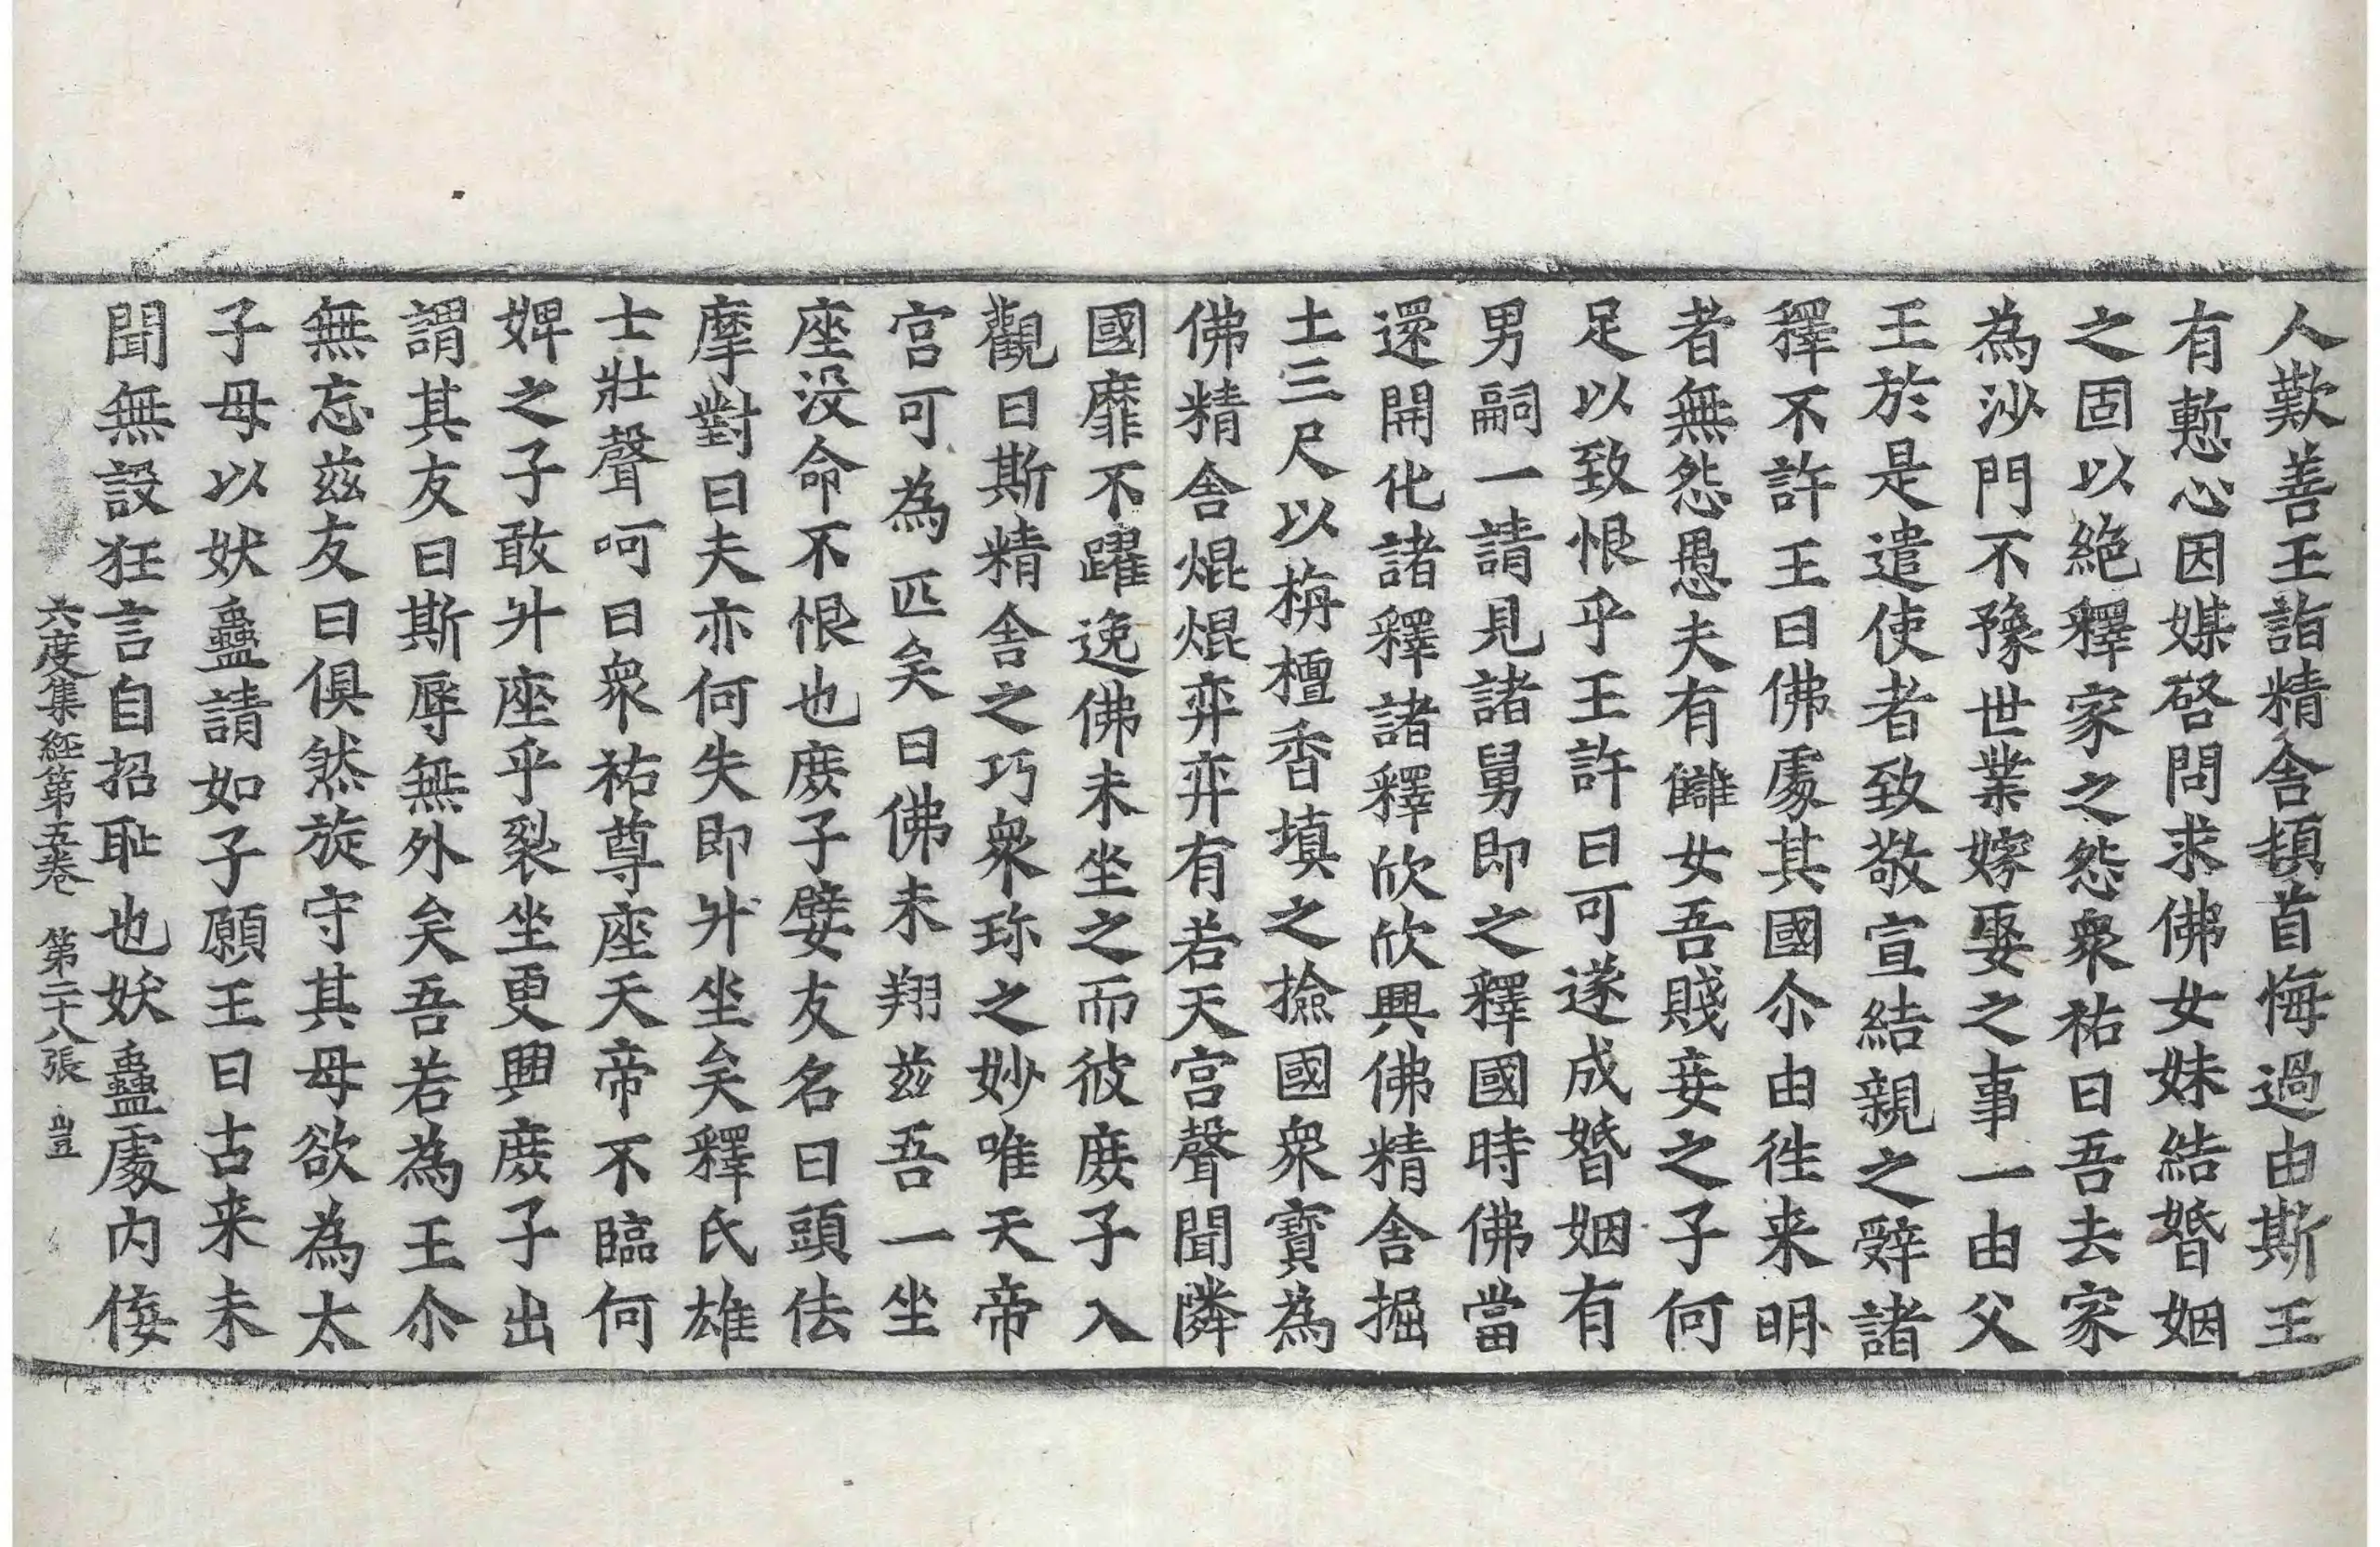 人歎善王詣精舍頓首悔過由斯王
有慙心因媒啓問求佛女妹結婚姻
之固以絶釋家之怨衆祐曰吾去家
為沙門不豫世業嫁娶之事一由父
王於是遣使者致敬宣結親之辭諸
釋不許王曰佛處其國尒由徃来明
者無怨愚夫有讎女吾賤妾之子何
足以致恨乎王許曰可遂成婚姻有
男嗣一請見諸舅即之釋國時佛當
還開化諸釋諸釋欣欣興佛精舍掘
土三尺以栴檀香填之撿國衆寶為
佛精舍焜焜弈弈有若天宫聲聞隣
國靡不躍逸佛未坐之而彼庻子入
觀曰斯精舍之巧衆珎之妙唯天帝
宫可為匹矣曰佛未翔兹吾一坐
座没命不恨也庻子嬖友名曰頭佉
摩對曰夫亦何失即升坐矣釋氏雄
士壯聲呵曰衆祐尊座天帝不臨何
婢之子敢升座乎裂坐更興庻子出
謂其友曰斯辱無外矣吾若為王尒
無忘兹友曰俱然旋守其母欲為太
子母以妖蠱請如子願王曰古来未
聞無設狂言自招耻也妖蠱處内佞
六度集經第五卷　第二十八張　豈